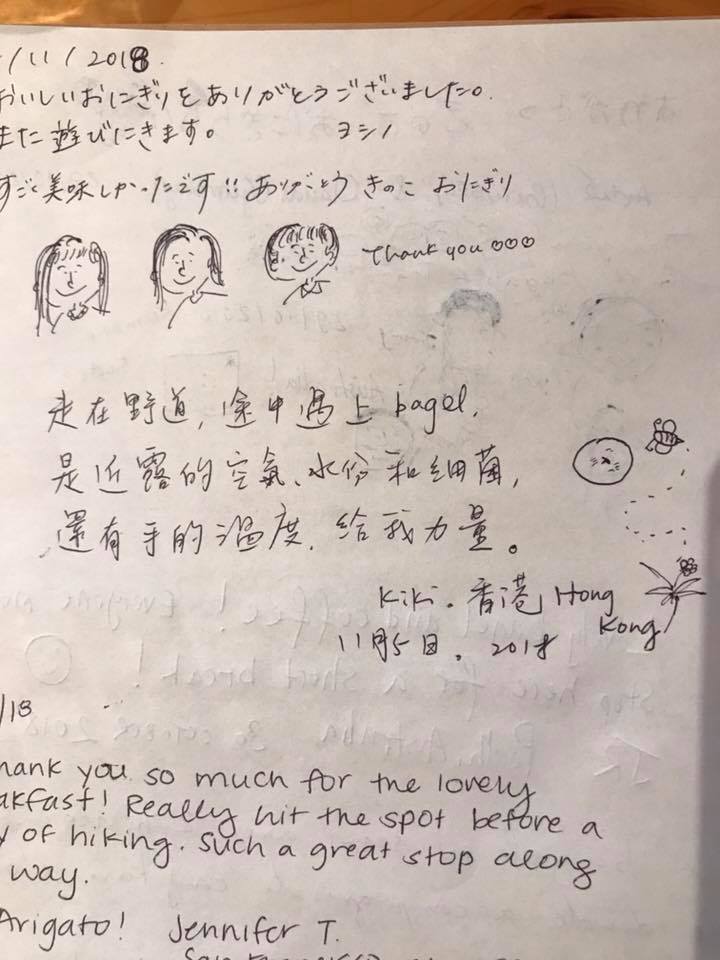 /11/2018.
おいしいおにぎりをありがとうございました。
また遊びにきます。 ヨシノ
すごく美味しかったです!! ありがとう きのこ おにぎり
Thank you
走在野道,途中遇上 bagel,
是近露的空氣、水份和細菌,
還有手的溫度,給我力量。
Kiki. 香港 Hong
Kong
11月5日, 2018
/18
hank you so much for the lovely
akfast! Really hit the spot before a
y of hiking. Such a great stop along
way.
Arigato! Jennifer T.